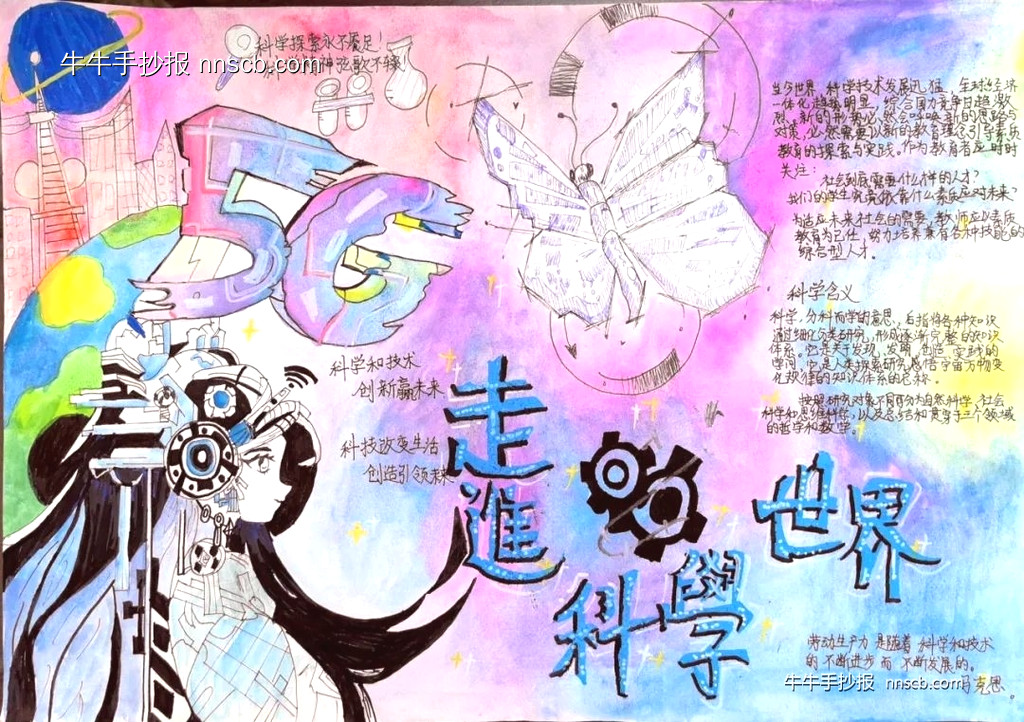 牛牛手抄报 nnscb.com
科学探索永不魇足!
神弦歌不辍!
5G
当今世界,科学技术发展迅猛,全球经济
一体化趋势明显,综合国力竞争日趋激
烈,新的形势必然会呼唤新的思路与
对策,必然需要以新的教育理念引导素质
教育的探索与实践。作为教育者应时时
关注:
社会到底需要什么样的人才?
我们的学生究竟依靠什么素质应对未来?
为适应未来社会的需要,教师应以素质
教育为己任,努力培养兼有各种技能的
综合型人才。
科学含义
科学,分科而学的意思,后指将各种知识
通过细化分类研究,形成逐渐完整的知识
体系。它是关于发现,发明,创造,实践的
学问,它是人类探索研究感悟宇宙万物变
化规律的知识体系的总称。
按照研究对象不同可分为自然科学,社会
科学和思维科学,以及总结和贯穿于三个领域
的哲学和数学。
科学和技术
创新赢未来
科技改变生活
创造引领未来
走進
科學
世界
劳动生产力是随着科学和技术
的不断进步而不断发展的。
牛牛手抄报 nnscb.com
马克思